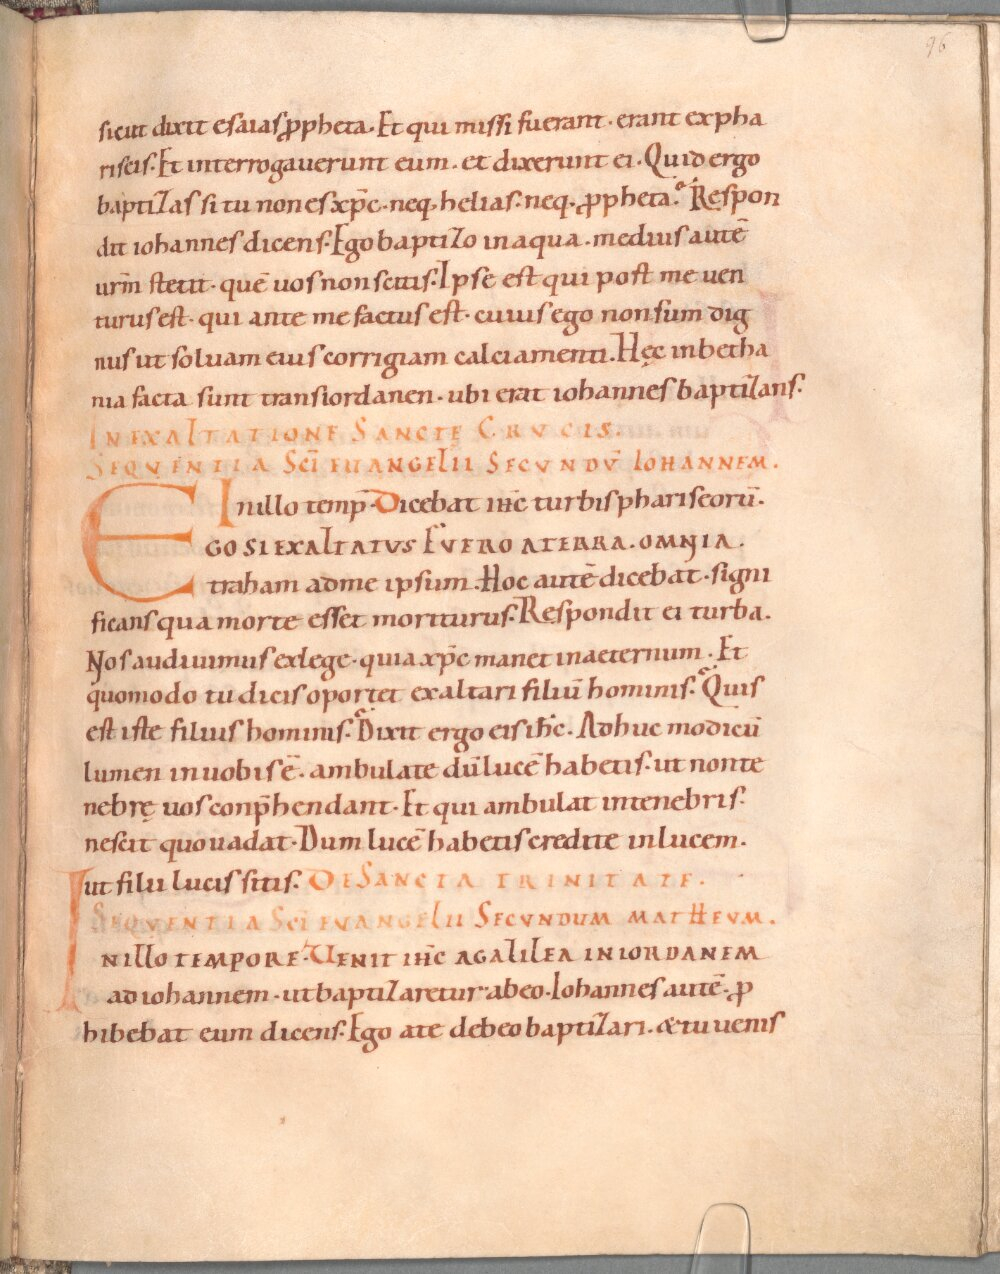 96
sicut dixit esaias ꝓpheta. Et qui missi fuerant. erant expha
riseis. Et interrogauerunt eum. et dixerunt ei. Quid ergo
baptizas si tu non es xp̄c. neq; helias. neq; ꝓpheta. Respon
dit iohannes dicens. Ego baptizo in aqua. medius autē
urm̄ stetit. quē uos non scitis. Ipse est qui post me uen
turus est. qui ante me factus est. cuius ego non sum dig
nus ut soluam eius corrigiam calciamenti. Hęc in betha
nia facta sunt trans iordanen. ubi erat iohannes baptizans.
IN EXALTATIONE SANCTĘ CRUCIS.
SEQUENTIA SCĪ EUANGELII SECUNDŪ IOHANNEM.
In illo temp̄. Dicebat ih̄c turbis phariseorū.
EGO SI EXALTATUS FUERO A TERRA. OMNIA.
traham ad me ipsum. Hoc autē dicebat. signi
ficans qua morte esset moriturus. Respondit ei turba.
Nos audiuimus ex lege. quia xp̄c manet in aeternum. Et
quomodo tu dicis oportet exaltari filiū hominis. Quis
est iste filius hominis. Dixit ergo eis ih̄c. Adhuc modicū
lumen in uobis ē. ambulate dū lucē habetis. ut non te
nebrę uos conp̄hendant. Et qui ambulat in tenebris.
nescit quo uadat. Dum lucē habetis credite in lucem.
ut filii lucis sitis. DE SANCTA TRINITATE.
SEQUENTIA SCĪ EUANGELII SECUNDUM MATHEUM.
IN ILLO TEMPORE. UENIT IH̄C A GALILEA IN IORDANEM
ad iohannem. ut baptizaretur ab eo. Iohannes autē. ꝓ
hibebat eum dicens. Ego a te debeo baptizari. & tu uenis